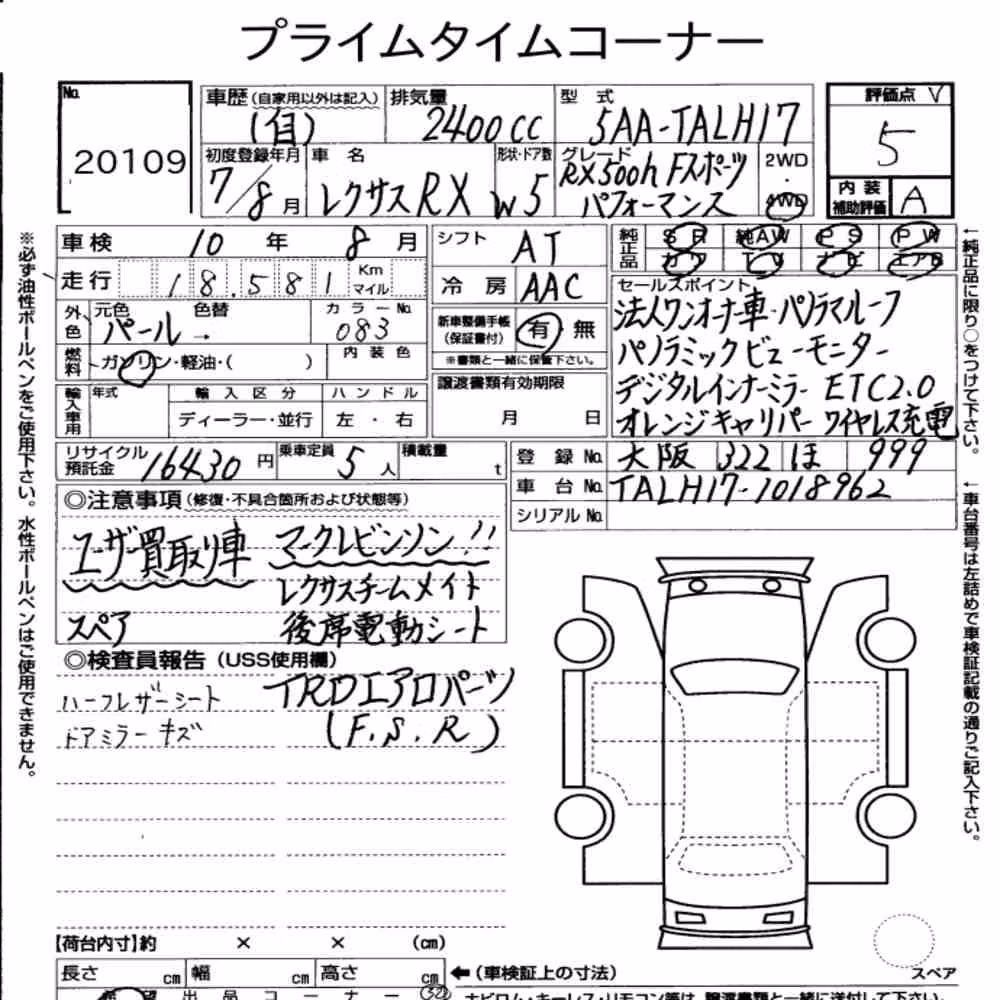 プライムタイムコーナー
No.
20109
車歴 (自家用以外は記入)
(自)
排気量
2400cc
型式
5AA-TALH17
評価点
5
初度登録年月
7/8月
車名
レクサスRX
形状・ドア数
W5
グレード
RX500h Fスポーツ
パフォーマンス
2WD
・
4WD
内装
補助評価
A
車検 10年 8月
シフト
AT
純正品
SR 純AW PS PW
カワ TV ナビ エアB
走行 18.581 Km
マイル
冷房
AAC
セールスポイント
法人ワンオーナー車・パノラマルーフ
パノラミックビューモニター
デジタルインナーミラー ETC2.0
オレンジキャリパー ワイヤレス充電
外色
元色 色替
パール →
カラーNo.
083
新車整備手帳
(保証書付)
有 無
※書類と一緒に保管下さい。
燃料
ガソリン・軽油・( )
内装色
譲渡書類有効期限
月 日
輸入車用
年式
輸入区分
ハンドル
ディーラー・並行 左・右
リサイクル
預託金
16430円
乗車定員
5人
積載量
t
登録No.
大阪 322 ほ 999
車台No.
TALH17-1018962
シリアルNo.
◎注意事項(修復・不具合箇所および状態等)
ユーザー買取り車 マークレビンソン!!
レクサスチームメイト
スペア 後席電動シート
◎検査員報告(USS使用欄)
ハーフレザーシート TRDエアロパーツ
ドアミラーキズ (F.S.R)
【荷台内寸】約 × × (cm)
長さ cm 幅 cm 高さ cm
←(車検証上の寸法)
スペア
出品コーナー
ナビロム・キーレス・リモコン等は、譲渡書類と一緒に送付して下さい。
※必ず油性ボールペンをご使用下さい。水性ボールペンはご使用できません。
←純正品に限り○をつけて下さい。
←車台番号は左詰めで車検証記載の通りご記入下さい。